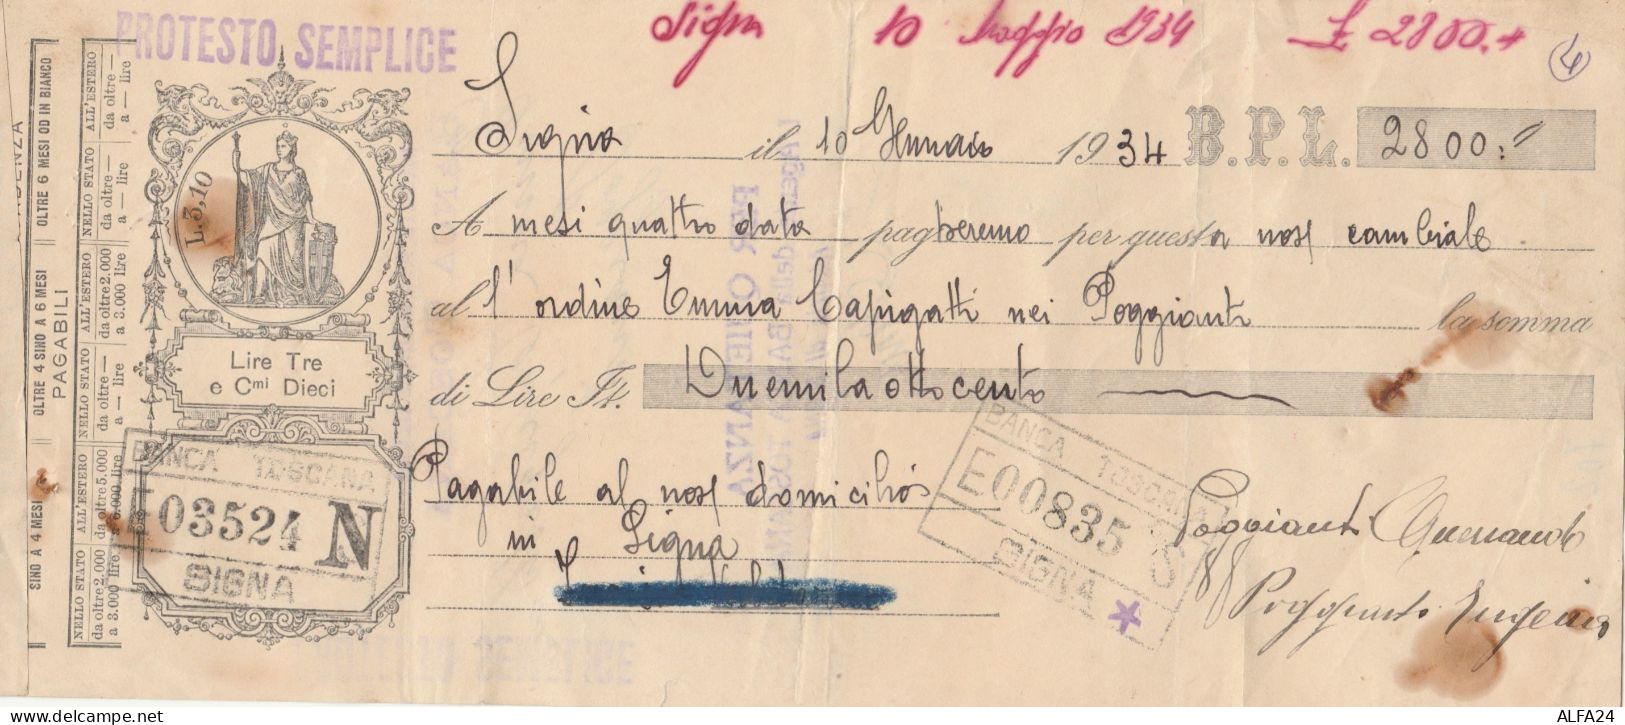 PROTESTO SEMPLICE
Signa 10 Maggio 1934 £ 2800.+
4
Signa il 10 Gennaio 1934 B.P.L. 2800:
A mesi quattro data pagheremo per questa nos/ cambiale
al l'ordine Emma Capigatti nei Poggianti la somma
di Lire It. Duemilaottocento
Pagabile al nos/ domicilio
in Signa
Poggianti
Poggianti Eugenio
L. 3,10
Lire Tre
e Cmi Dieci
BANCA TOSCANA
E03524 N
SIGNA
BANCA TOSCANA
E00835
SIGNA *
SINO A 4 MESI
OLTRE 4 SINO A 6 MESI
OLTRE 6 MESI OD IN BIANCO
PAGABILI
NELLO STATO
da oltre 2.000
a 3.000 lire
ALL'ESTERO
da oltre 5.000
NELLO STATO
da oltre —
a — lire
ALL'ESTERO
da oltre 2.000
a 3.000 lire
NELLO STATO
da oltre —
a — lire
ALL'ESTERO
da oltre —
a — lire
PER QUIETANZA
ALFA24